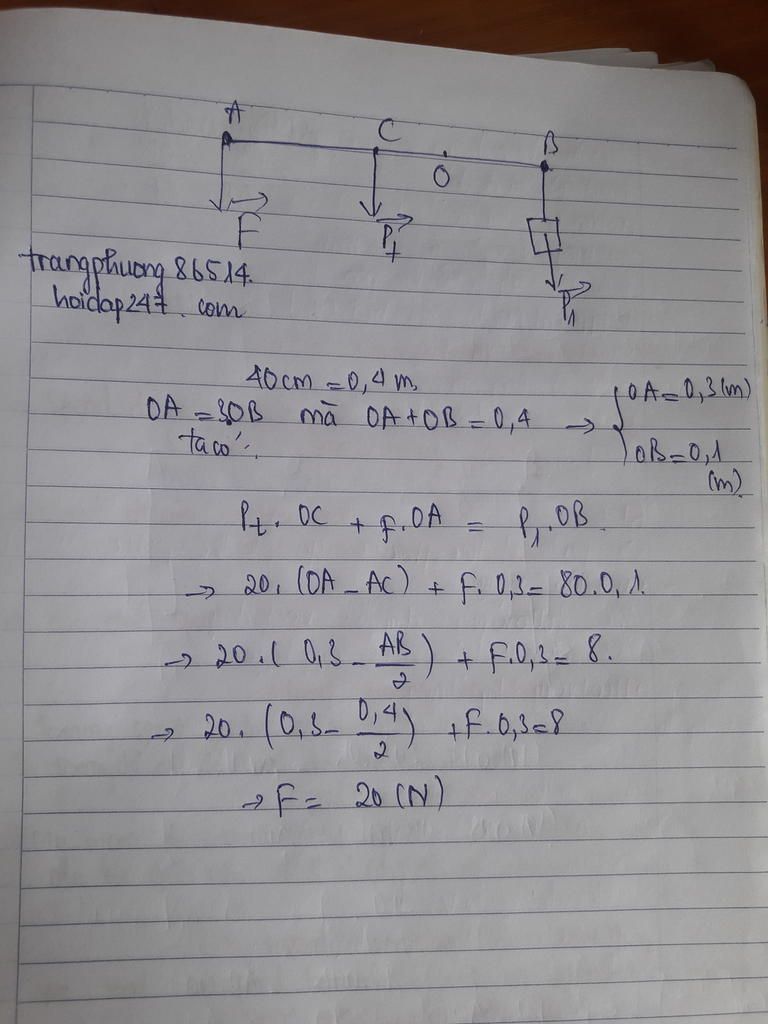 A
C
B
O
F
P_t
P_1
trangphuong86514.
hoidap247.com
40cm = 0,4 m
OA = 3OB mà OA + OB = 0,4 → { OA = 0,3 (m)
ta có: OB = 0,1
(m)
P_t . OC + F. OA = P_1 . OB
→ 20. (OA - AC) + F. 0,3 = 80. 0,1.
→ 20. (0,3 - AB/2) + F. 0,3 = 8.
→ 20. (0,3 - 0,4/2) + F. 0,3 = 8
→ F = 20 (N)